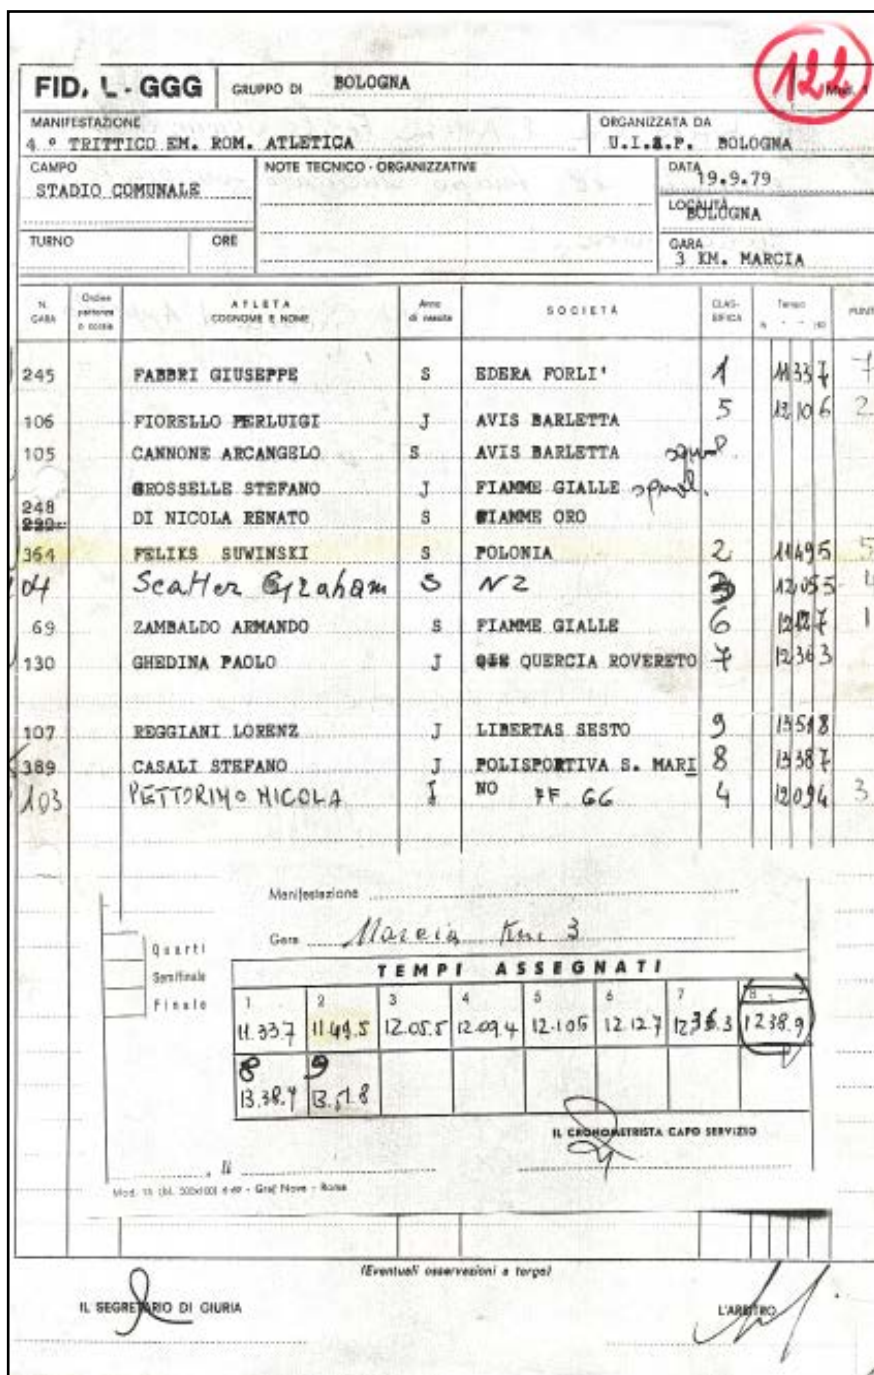 122
FID. L - GGG GRUPPO DI BOLOGNA
MANIFESTAZIONE
4 º TRITTICO EM. ROM. ATLETICA
ORGANIZZATA DA
U.I.S.P. BOLOGNA
CAMPO
STADIO COMUNALE
NOTE TECNICO - ORGANIZZATIVE
DATA
19.9.79
LOCALITÀ
BOLOGNA
TURNO ORE
GARA
3 KM. MARCIA
N. GARA Ordine partenza o corsia ATLETA COGNOME E NOME Anno di nascita SOCIETÀ CLAS-SIFICA Tempo PUNTI
245 FABBRI GIUSEPPE S EDERA FORLI' 1 11 33 7 7
106 FIORELLO PERLUIGI J AVIS BARLETTA 5 12 10 6 2
105 CANNONE ARCANGELO S AVIS BARLETTA squal.
GROSSELLE STEFANO J FIAMME GIALLE squal.
248 DI NICOLA RENATO S FIAMME ORO
364 FELIKS SUWINSKI S POLONIA 2 11 49 5 5
04 Scatter Graham S NZ 3 12 05 5 4
69 ZAMBALDO ARMANDO S FIAMME GIALLE 6 12 12 7 1
130 GHEDINA PAOLO J QUERCIA ROVERETO 7 12 36 3
107 REGGIANI LORENZ J LIBERTAS SESTO 9 13 51 8
389 CASALI STEFANO J POLISPORTIVA S. MARI 8 13 38 7
NO
103 PETTORINO NICOLA J FF GG 4 12 09 4 3
Manifestazione
Gara Marcia Km 3
Quarti
Semifinale
Finale
TEMPI ASSEGNATI
1 2 3 4 5 6 7 8
11.33.7 11.49.5 12.05.5 12.09.4 12.10.6 12.12.7 12.36.3 12 38.9
8 9
13.38.7 13.51.8
IL CRONOMETRISTA CAPO SERVIZIO
, li
Graf Nove - Roma
(Eventuali osservazioni a tergo)
IL SEGRETARIO DI GIURIA
L'ARBITRO